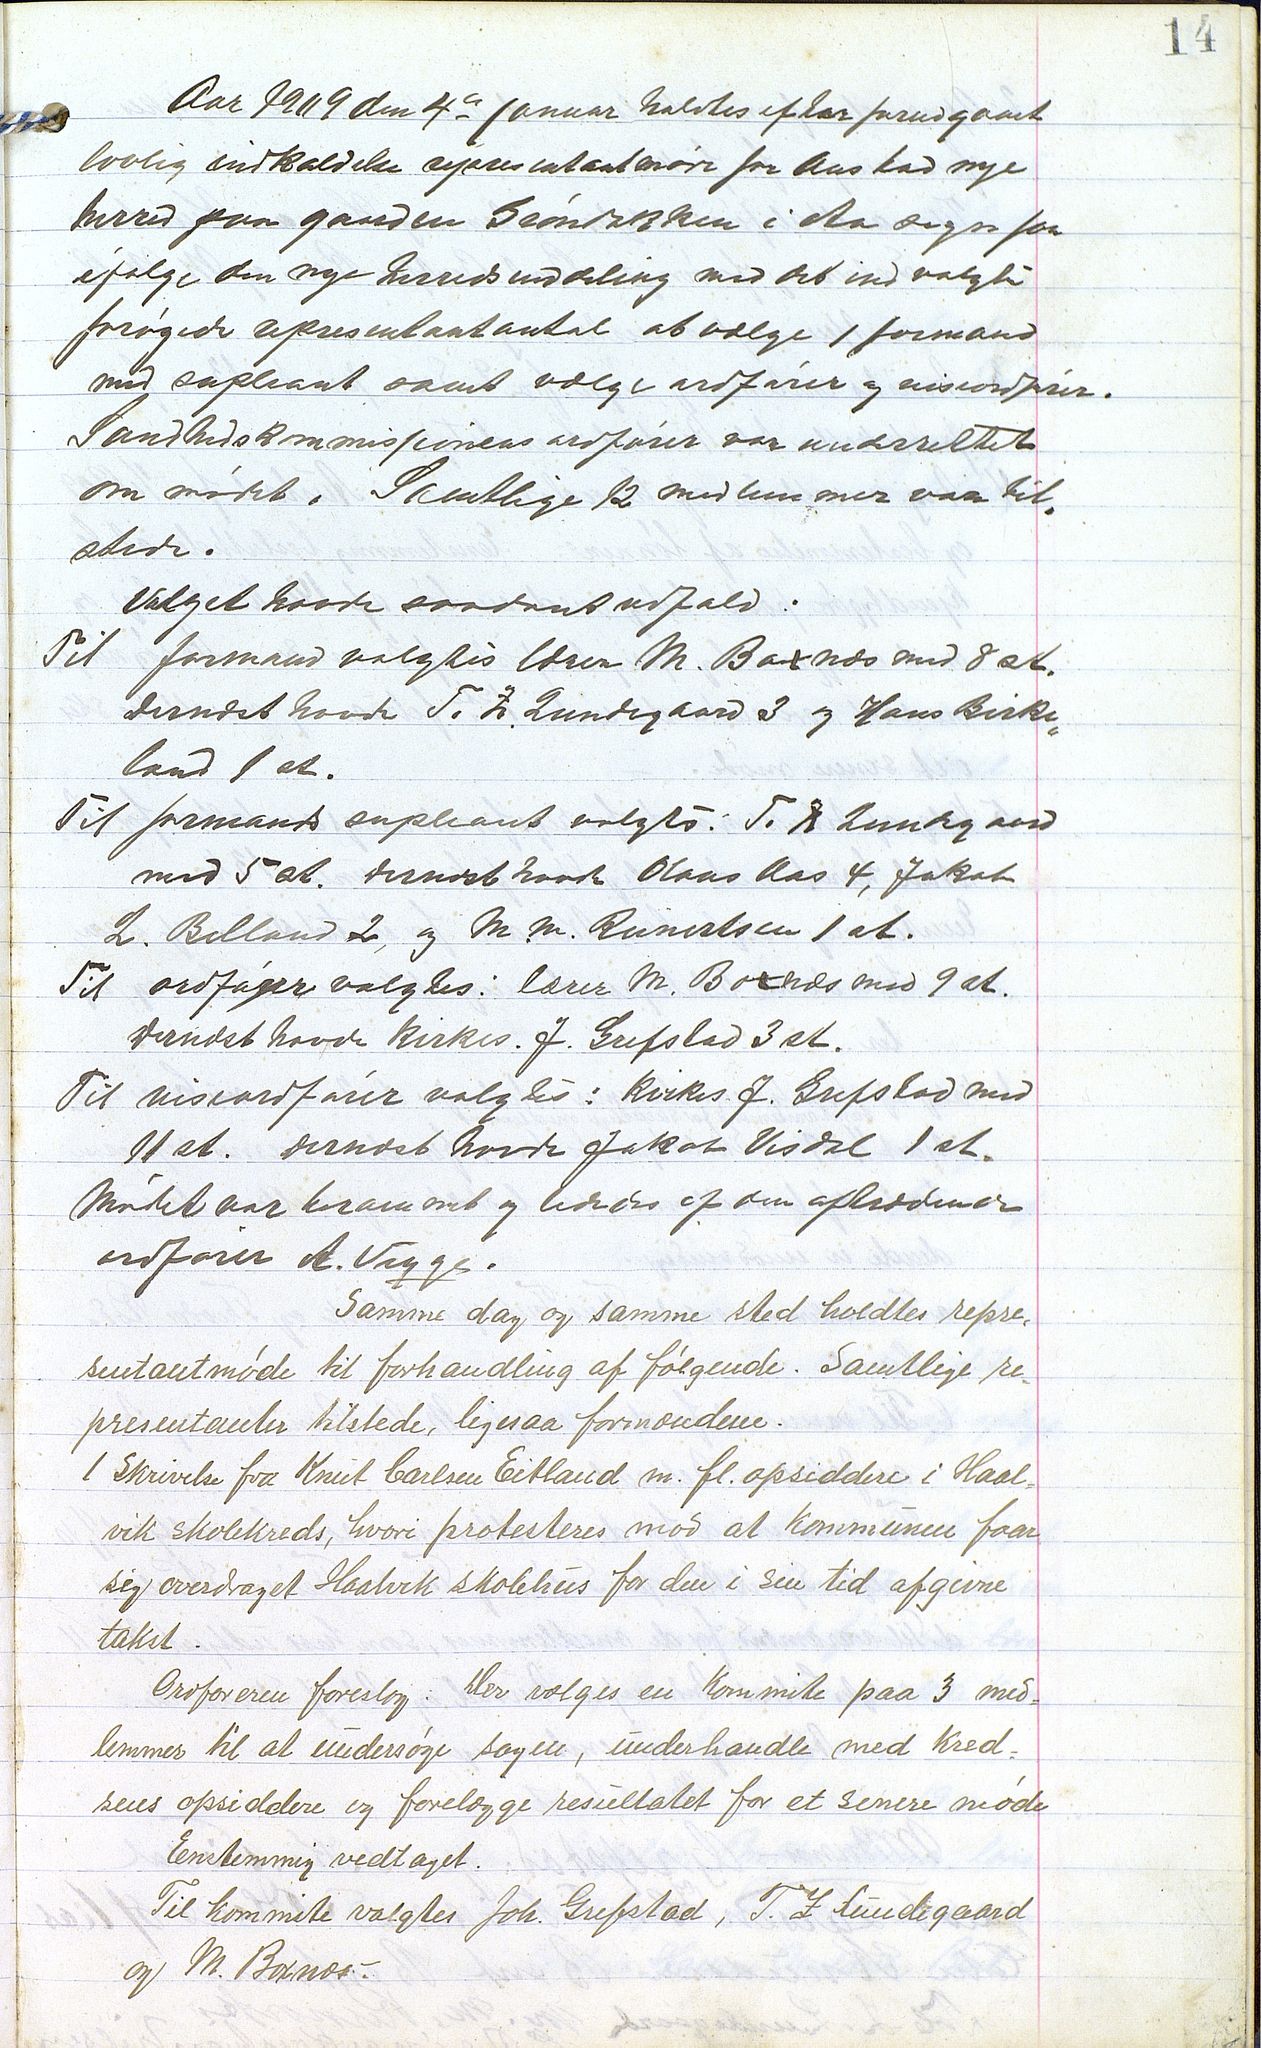 14
Aar 1909 den 4de januar holdtes efter forudgaaet
lovlig indkaldelse representantmøde for Austad nye
herred paa gaarden Gröndokken i Aa sogn for
ifølge den nye herredsinddeling med det indvalgte
forøgede representantantal at vælge 1 formand
med supleant samt vælge ordfører og viseordfører.
Sundhedskommissionens ordfører var underrettet
om mødet. Samtlige 12 medlemmer var til„
stede.
Valget havde saadant udfald:
Til formand valgtes lærer M. Boxnæs med 8 st.
dernæst havde T. Z. Lundegaard 3 og Hans Birke„
land 1 st.
Til formands supleant valgtes: T. Z Lundegaard
med 5 st. dernæst havde Olaus Aas 4, Jakob
L. Belland 2, og M. M. Reinertsen 1 st.
Til ordfører valgtes: lærer M. Boxnæs med 9 st.
dernæst havde Kirkes. J. Grefstad 3 st.
Til viseordfører valgtes: Kirkes. J. Grefstad med
11 st. dernæst havde Jakob Visdal 1 st.
Mødet var berammet og lededes af den aftrædende
ordfører A. Vegge.
Samme dag og samme sted holdtes repre„
sentantmøde til forhandling af følgende. Samtlige re„
presentanter tilstede, ligesaa formændene.
1 Skrivelse fra Knut Carlsen Eitland m. fl. opsiddere i Haal„
vik skolekreds, hvori protesteres mod at kommunen faar
sig overdraget Haalvik skolehus for den i sin tid afgivne
takst.
Ordføreren foreslog: Der vælges en kommite paa 3 med„
lemmer til at undersøge sagen, underhandle med kred„
sens opsiddere og forelægge resultatet for et senere møde
Eenstemmig vedtaget.
Til kommite valgtes Joh. Grefstad, T. Z Lundegaard
og M. Boxnæs.-